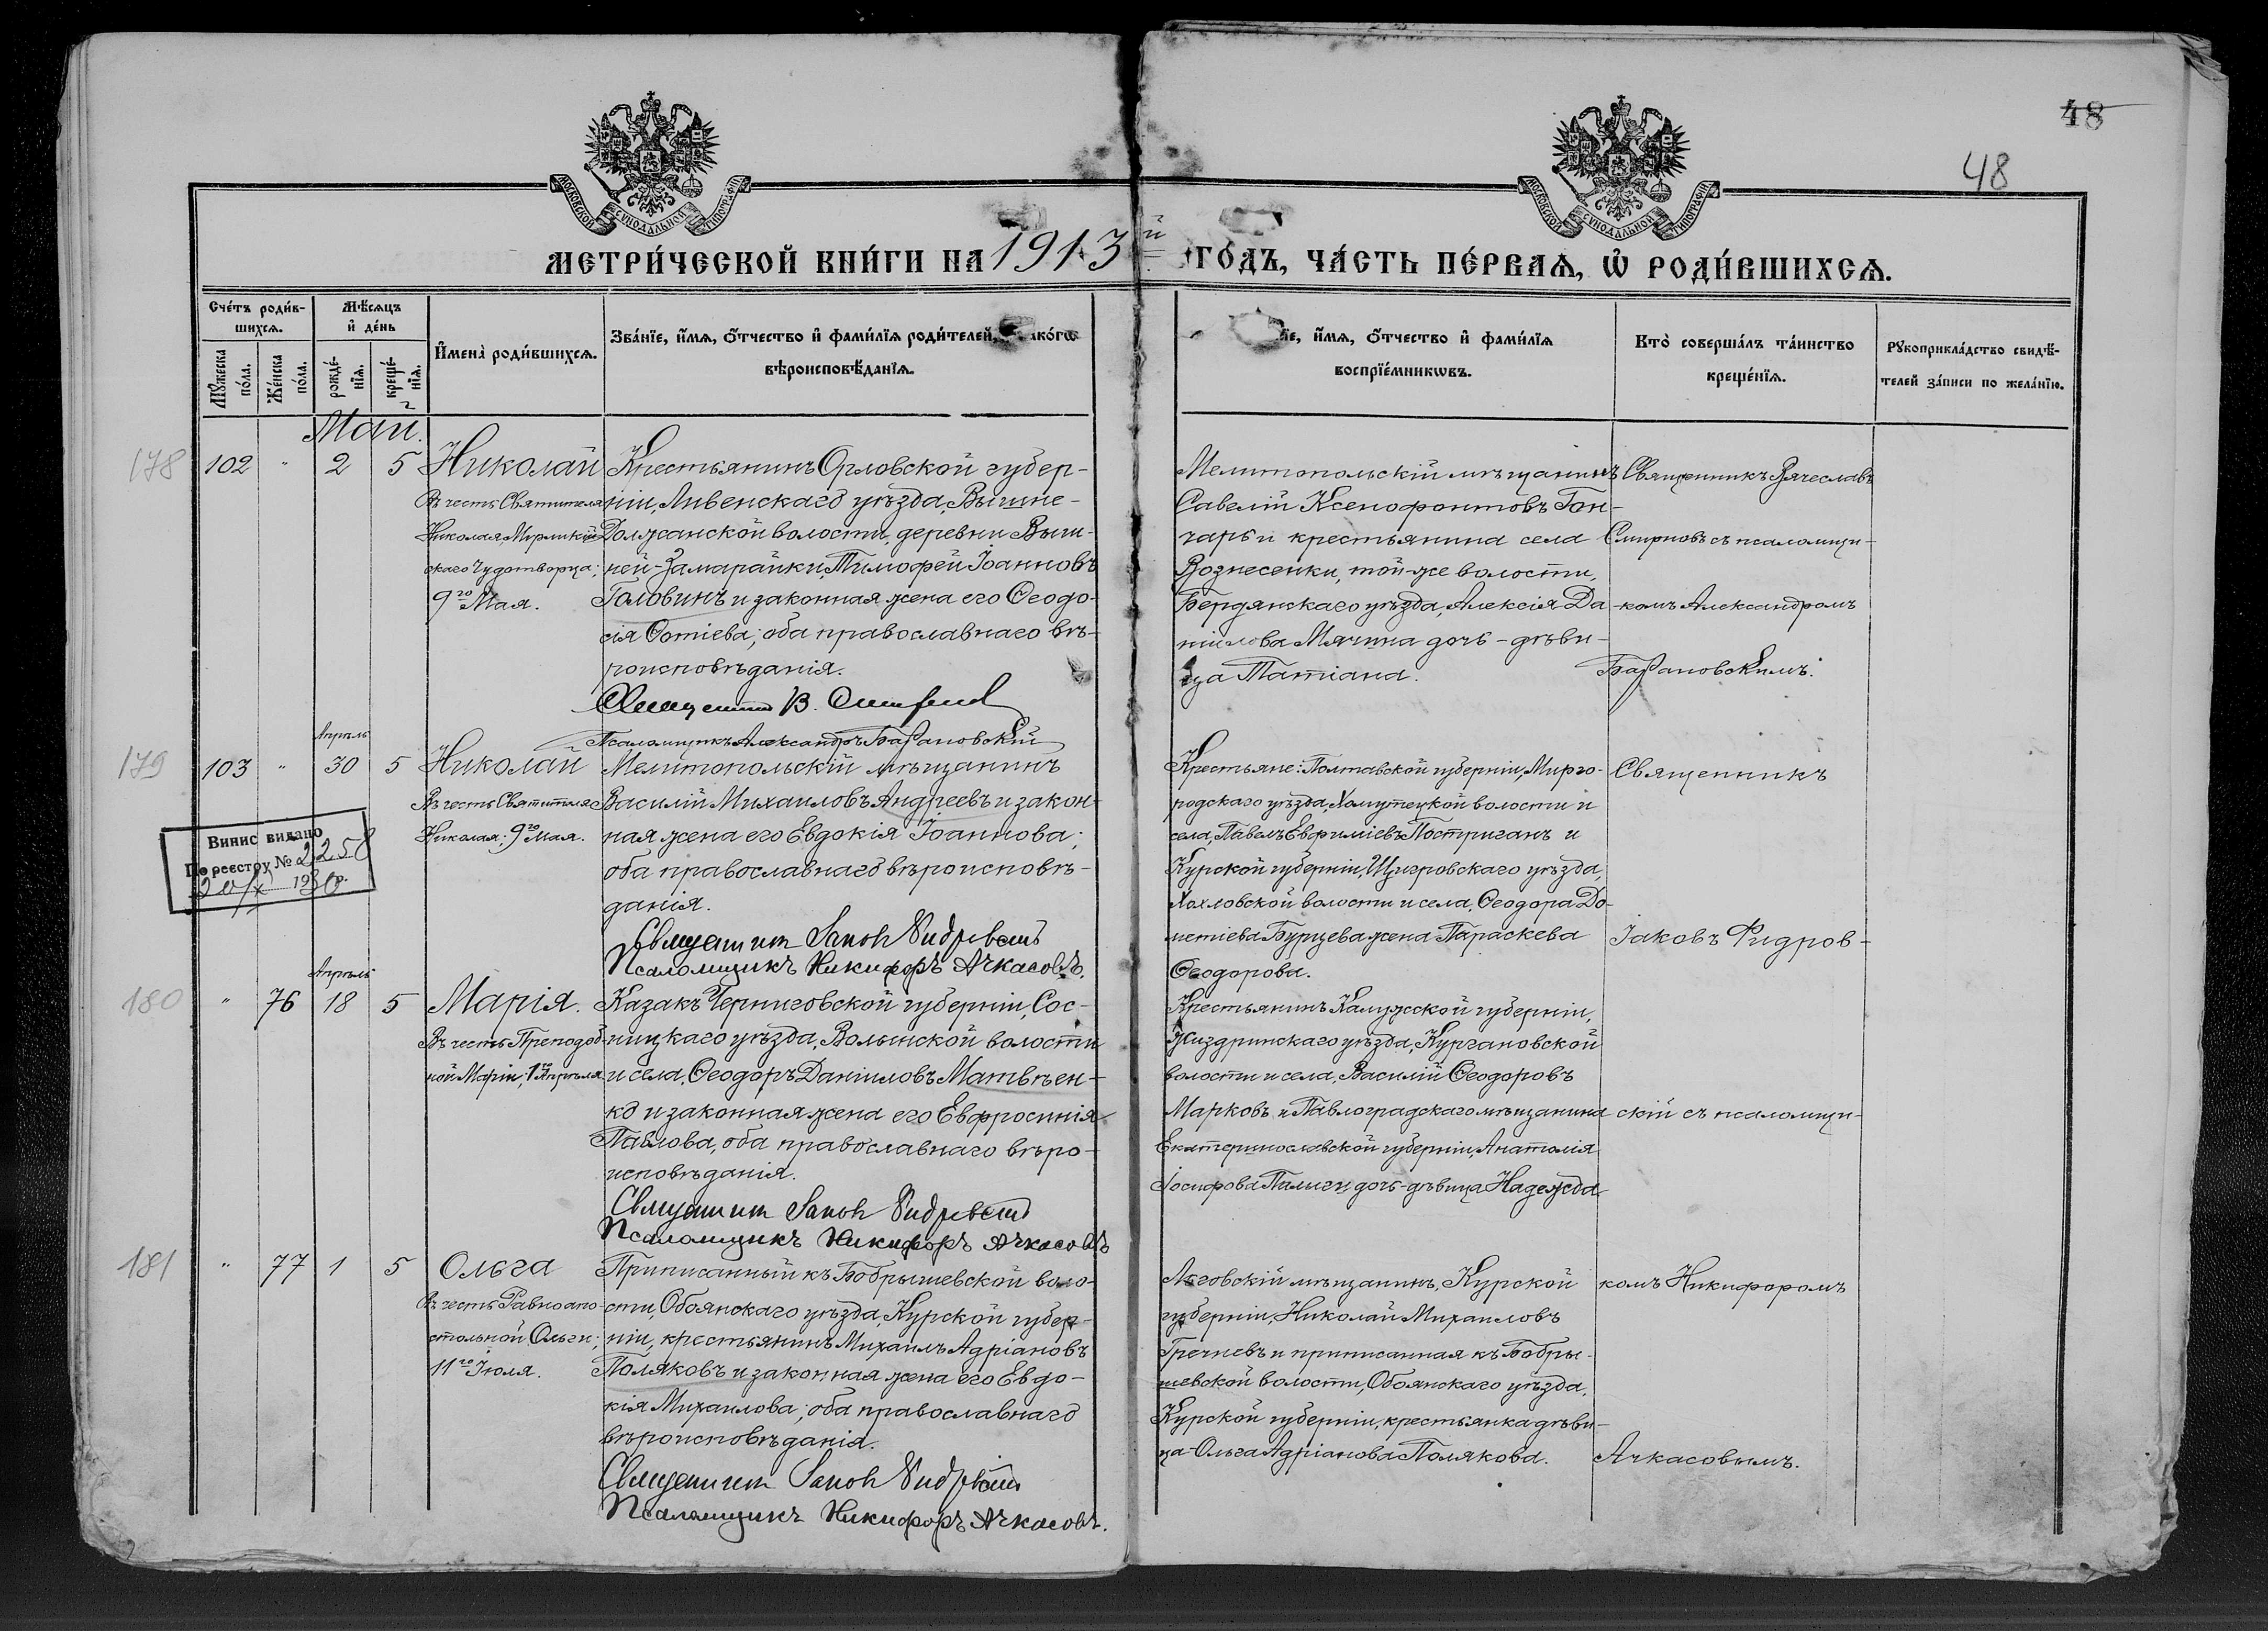 48
48
МОСКОВСКОЙ СѴНОДАЛЬНОЙ ТИПОГРАФІИ
МОСКОВСКОЙ СѴНОДАЛЬНОЙ ТИПОГРАФІИ
МЕТРИ́ЧЕСКОЙ КНИ́ГИ НА 1913й ГО́ДЪ, ЧА́СТЬ ПЕ́РВАѦ, Ѡ҆ РОДИ́ВШИХСѦ.
Сче́тъ роди́в-
шихсѧ.
Мꙋ́жеска по́ла.
Же́нска по́ла.
Мѣ́сѧцъ
и҆ де́нь
рожде́-нїѧ.
креще́-нїѧ.
И҆мена̀ роди́вшихсѧ.
Зва́нїе, и҆́мѧ, ѻ҆́тчество и҆ фами́лїѧ роди́телей, како́гѡ
вѣроисповѣ́данїѧ.
їе, и҆́мѧ, ѻ҆́тчество и҆ фами́лїѧ
воспрїе́мникѡвъ.
Кто̀ соверша́лъ та́инство
креще́нїѧ.
Рꙋкоприкла́дство свидѣ́-
телей за́писи по жела́нїю.
Май.
178
102 " 2 5
Николай
Въ честь Святителя
Николая, Мирликій-
скаго Чудотворца;
9го Мая.
Крестьянинъ Орловской губер-
ніи, Ливенскаго уѣзда, Вышне-
Должанской волости, деревни Выш-
ней-Замарайки, Тимофей Іоанновъ
Головинъ и законная жена его Ѳеодо-
сія Фотіева; оба православнаго вѣ-
роисповѣданія.
Священникъ В. Смирнов
Псаломщикъ Александръ Барановскій
Мелитопольскій мѣщанинъ
Савелій Ксенофонтовъ Гон-
чаръ и крестьянина села
Вознесенки, той-же волости,
Бердянскаго уѣзда, Алексія Да-
ніилова Мячина дочь-дѣви-
ца Татіана.
Священникъ Вячеславъ
Смирновъ съ псаломщи-
комъ Александромъ
Барановскимъ.
179
Апрѣль
103 " 30 5
Николай
Въ честь Святителя
Николая; 9го Мая.
Мелитопольскій мѣщанинъ
Василій Михаиловъ Андреевъ и закон-
ная жена его Евдокія Іоаннова;
оба православнаго вѣроисповѣ-
данія.
Священникъ Іаковъ Фидровскій
Псаломщикъ Никифоръ Ачкасовъ.
Винис видано
По реєстру № 2258
20/X 1930 р.
Крестьяне: Полтавской губерніи, Мирго-
родскаго уѣзда, Хомутецкой волости и
села, Павелъ Евфиміевъ Постриганъ и
Курской губерніи, Щигровскаго уѣзда,
Хохловской волости и села, Ѳеодора До-
метіева Бурцева жена Параскева
Ѳеодорова.
Священникъ
Іаковъ Фидров-
180
Апрѣль
" 76 18 5
Марія.
Въ честь Преподоб-
ной Маріи; 1го Апрѣля
Казакъ Черниговской губерніи, Сос-
ницкаго уѣзда, Волынской волости
и села, Ѳеодоръ Даніиловъ Матвѣен-
ко и законная жена его Евфросинія
Павлова, оба православнаго вѣро-
исповѣданія.
Священникъ Іаковъ Фидровскій
Псаломщикъ Никифоръ Ачкасовъ
Крестьянинъ Калужской губерніи,
Жиздринскаго уѣзда, Кургановской
волости и села, Василій Ѳеодоровъ
Марковъ и Павлоградскаго мѣщанина
Екатеринославской губерніи, Анатолія
Іосифова Палиги дочь-дѣвица Надежда
скій съ псаломщи-
181
" 77 1 5
Ольга
Въ честь Равноапо-
стольной Ольги;
11го Іюля.
Приписанный къ Бобрышевской воло-
сти, Обоянскаго уѣзда, Курской губер-
ніи, крестьянинъ Михаилъ Адріановъ
Поляковъ и законная жена его Евдо-
кія Михаилова; оба православнаго
вѣроисповѣданія.
Священникъ Іаковъ Фидровскій
Псаломщикъ Никифоръ Ачкасовъ.
Льговскій мѣщанинъ, Курской
губерніи, Николай Михаиловъ
Гречневъ и приписанная къ Бобры-
шевской волости, Обоянскаго уѣзда,
Курской губерніи, крестьянка дѣви-
ца-Ольга Адріанова Полякова.
комъ Никифоромъ
Ачкасовымъ.